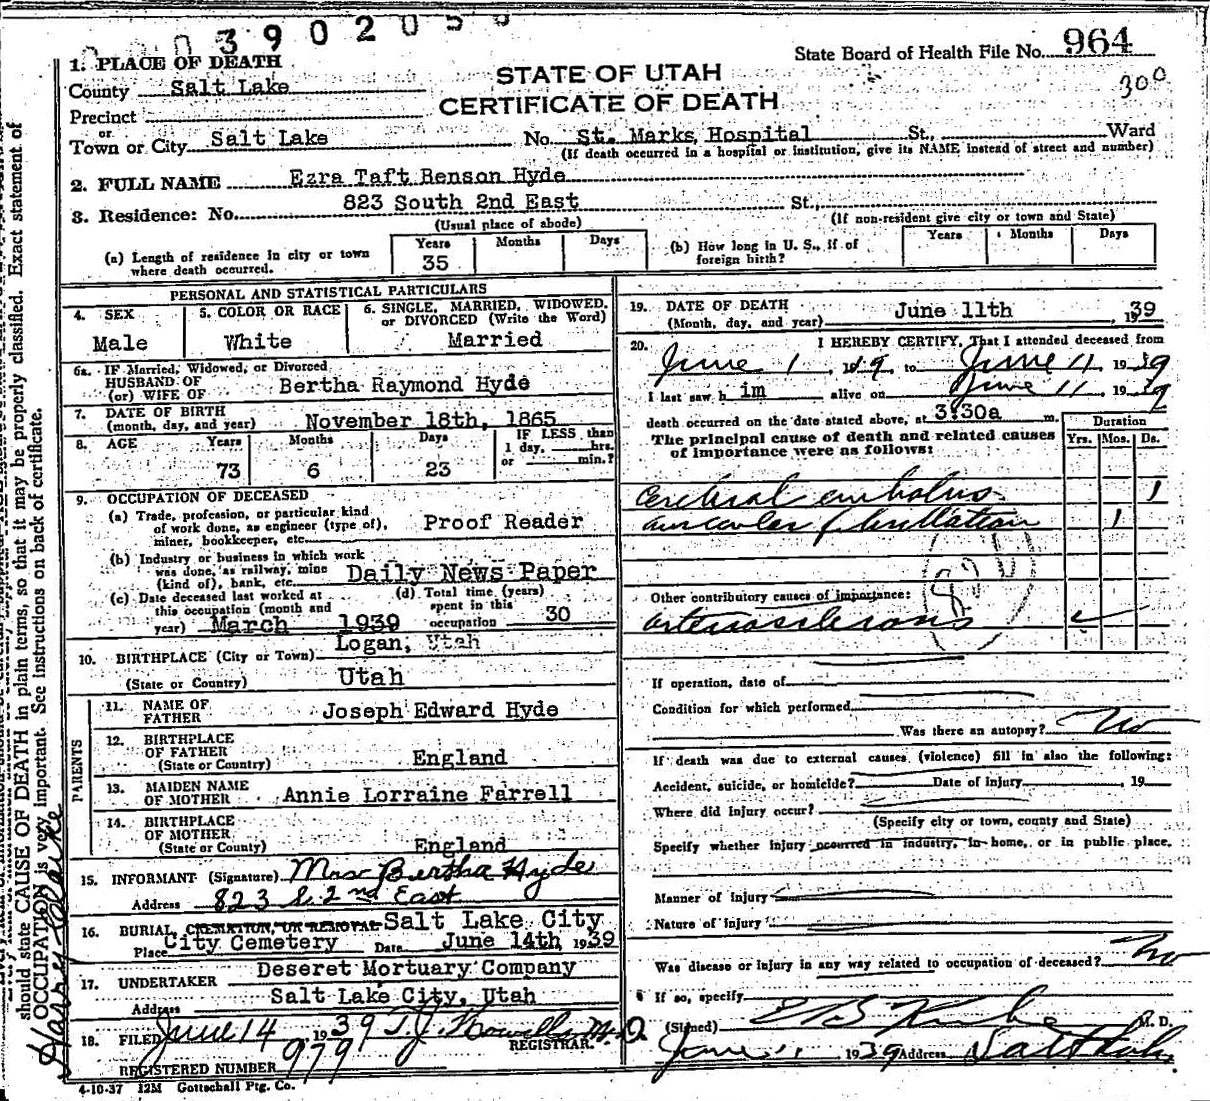 0390205
State Board of Health File No. 964
300
STATE OF UTAH
CERTIFICATE OF DEATH
1. PLACE OF DEATH
County Salt Lake
Precinct
or
Town or City Salt Lake No. St. Marks Hospital St., Ward
(If death occurred in a hospital or institution, give its NAME instead of street and number)
2. FULL NAME Ezra Taft Benson Hyde
3. Residence: No. 823 South 2nd East St.,
(Usual place of abode) (If non-resident give city or town and State)
(a) Length of residence in city or town where death occurred. Years 35 Months Days
(b) How long in U. S., if of foreign birth? Years Months Days
PERSONAL AND STATISTICAL PARTICULARS
4. SEX Male
5. COLOR OR RACE White
6. SINGLE, MARRIED, WIDOWED, or DIVORCED (Write the Word) Married
6a. IF Married, Widowed, or Divorced
HUSBAND OF
(or) WIFE OF Bertha Raymond Hyde
7. DATE OF BIRTH
(month, day, and year) November 18th, 1865
8. AGE Years 73 Months 6 Days 23 IF LESS than 1 day, hrs. or min.?
9. OCCUPATION OF DECEASED
(a) Trade, profession, or particular kind of work done, as engineer (type of), miner, bookkeeper, etc. Proof Reader
(b) Industry or business in which work was done, as railway, mine (kind of), bank, etc. Daily News Paper
(c) Date deceased last worked at this occupation (month and year) March 1939
(d) Total time (years) spent in this occupation 30
10. BIRTHPLACE (City or Town) Logan, Utah
(State or Country) Utah
PARENTS
11. NAME OF FATHER Joseph Edward Hyde
12. BIRTHPLACE OF FATHER
(State or Country) England
13. MAIDEN NAME OF MOTHER Annie Lorraine Farrell
14. BIRTHPLACE OF MOTHER
(State or Country) England
15. INFORMANT (Signature) Mrs Bertha Hyde
Address 823 S. 2nd East
16. BURIAL, CREMATION, OR REMOVAL Salt Lake City
Place City Cemetery Date June 14th, 1939
17. UNDERTAKER Deseret Mortuary Company
Address Salt Lake City, Utah
18. FILED June 14 1939 T. J. Howells M.D.
REGISTRAR.
REGISTERED NUMBER 979
4-10-37 12M Gottschall Ptg. Co.
19. DATE OF DEATH
(Month, day, and year) June 11th, 1939
20. I HEREBY CERTIFY, That I attended deceased from
June 1 1939 to June 11 1939
I last saw him alive on June 11, 1939
death occurred on the date stated above, at 3:30a m.
The principal cause of death and related causes of importance were as follows:
Duration
Yrs. Mos. Ds.
Cerebral embolus 1
auricular fibrillation 1
Other contributory causes of importance:
arteriosclerosis
If operation, date of
Condition for which performed
Was there an autopsy? No
If death was due to external causes (violence) fill in also the following:
Accident, suicide, or homicide? Date of injury 19
Where did injury occur?
(Specify city or town, county and State)
Specify whether injury occurred in industry, in home, or in public place.
Manner of injury
Nature of injury
Was disease or injury in any way related to occupation of deceased? No
If so, specify
(Signed) M. D.
June 1939 Address Salt Lake
should state CAUSE OF DEATH in plain terms, so that it may be properly classified. Exact statement of
OCCUPATION is very important. See instructions on back of certificate.